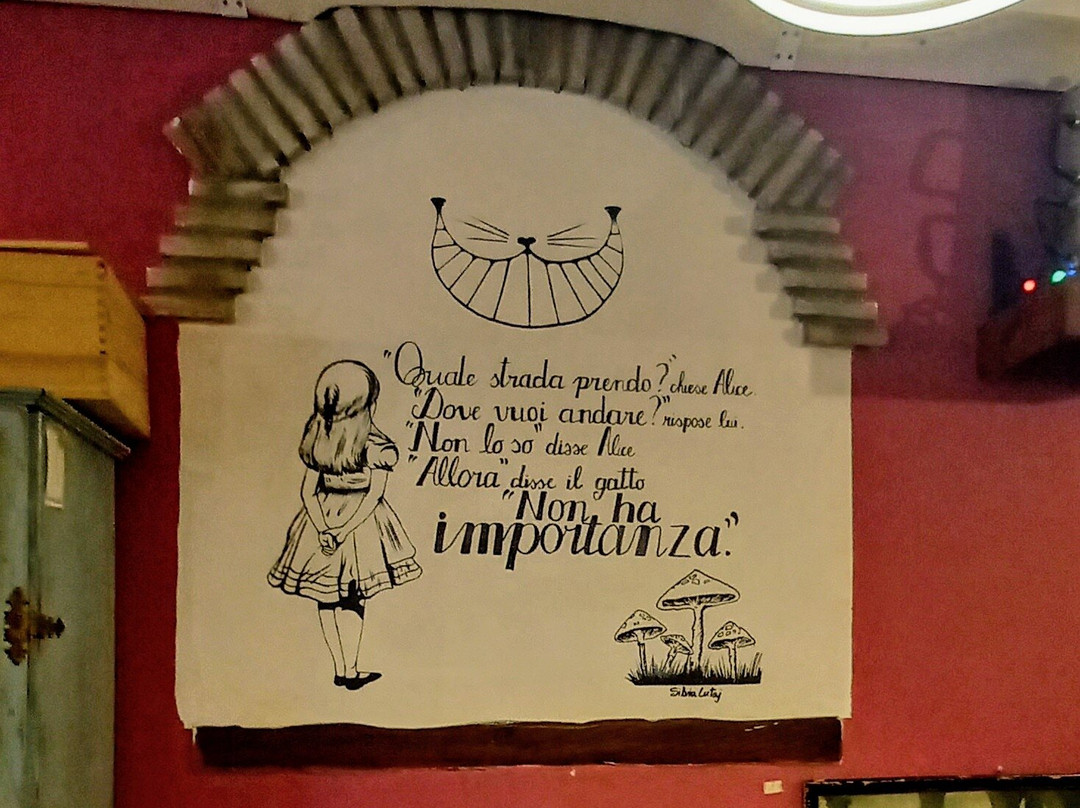 "Quale strada prendo?" chiese Alice.
"Dove vuoi andare?" rispose lui.
"Non lo so" disse Alice
"Allora" disse il gatto
"Non ha
importanza."
Silvia Lutaj